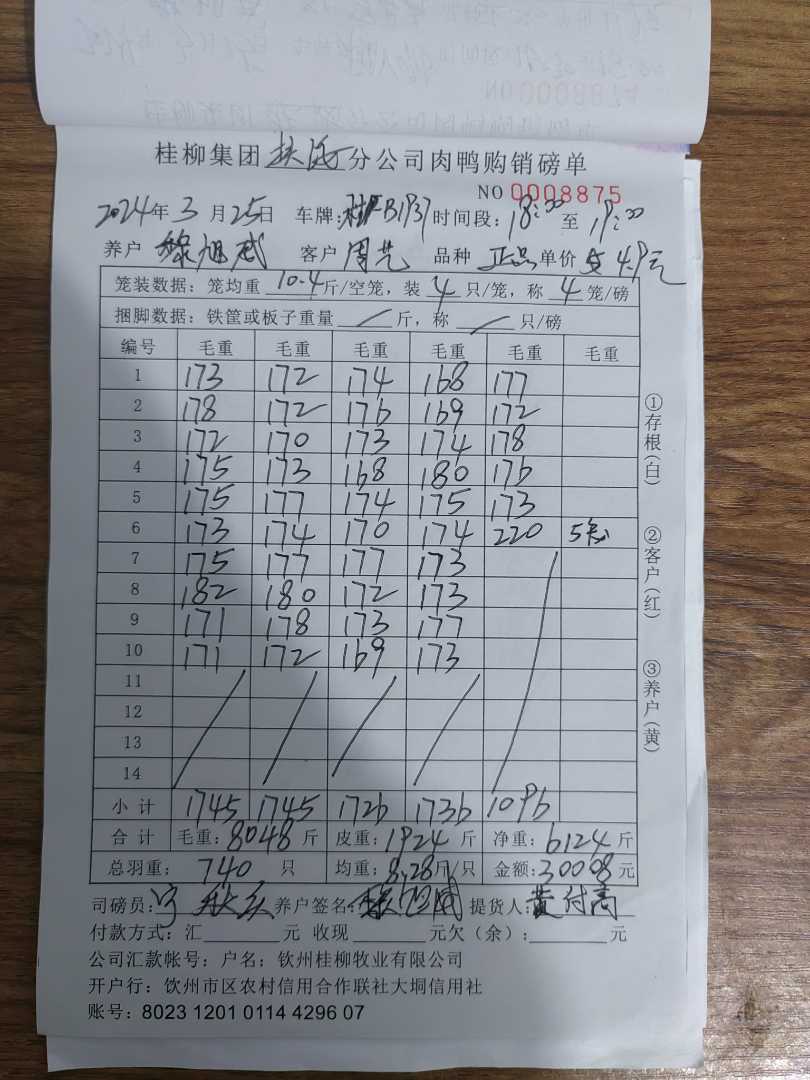 桂柳集团 分公司肉鸭购销磅单
NO 0008875
2024年 3 月 25日 车牌: B1937 时间段: 18:00 至 19:00
养户 旭威 客户 周艺 品种 正品 单价 4.9元
笼装数据: 笼均重 10.4 斤/空笼, 装 4 只/笼, 称 4 笼/磅
捆脚数据: 铁筐或板子重量 / 斤, 称 / 只/磅
编号 毛重 毛重 毛重 毛重 毛重 毛重
1 173 172 174 168 177
2 178 172 176 169 172
3 172 170 173 174 178
4 175 173 168 180 176
5 175 177 174 175 173
6 173 174 170 174 220 5笼
7 175 177 177 173
8 182 180 172 173
9 171 178 173 177
10 171 172 169 173
11
12
13
14
小计 1745 1745 1726 1736 1096
合计 毛重: 8048 斤 皮重: 1924 斤 净重: 6124 斤
总羽重: 740 只 均重: 8.28 斤/只 金额: 30008 元
司磅员: 养户签名: 旭威 提货人: 黄付高
付款方式: 汇 元 收现 元欠(余): 元
公司汇款帐号: 户名: 钦州桂柳牧业有限公司
开户行: 钦州市区农村信用合作联社大垌信用社
账号: 8023 1201 0114 4296 07
①存根(白)
②客户(红)
③养户(黄)